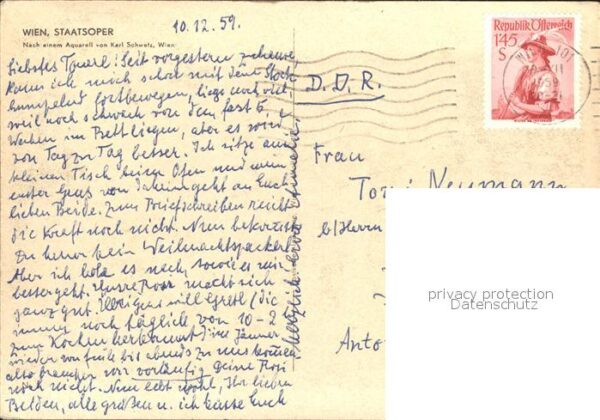 WIEN, STAATSOPER
Nach einem Aquarell von Karl Schwetz, Wien
10.12.59.
Liebstes Tonerl! Seit vorgestern zuhause,
kann ich mich schon mit dem Stock
humpelnd fortbewegen, liege noch viel,
weil noch schwach von den fast 6
Wochen im Bett liegen, aber es wird
von Tag zu Tag besser. Ich sitze am
kleinen Tisch beim Ofen und mein
erster Gruss von daheim geht an Euch
lieben Beide. Zum Briefschreiben reicht
die Kraft noch nicht. Nun bekommst
Du heuer kein Weihnachtspackerl
Aber ich hole es nach, sowie es mir
besser geht. Unsere Rosa macht sich
ganz gut. Übrigens will Gretl (die
immer noch täglich von 10-2
zum Kochen herkommt) im Jänner
wieder von früh bis abends zu uns kommen
also brauchen wir vorläufig Deine Rosi
noch nicht. Nun lebt wohl, Ihr lieben
Beiden, alle grüßen u. ich küsse Euch
herzlich Eure
Republik Österreich
1'45
S
D.D.R.
Frau
Toni Neumann
b/Herrn
Anto
privacy protection
Datenschutz